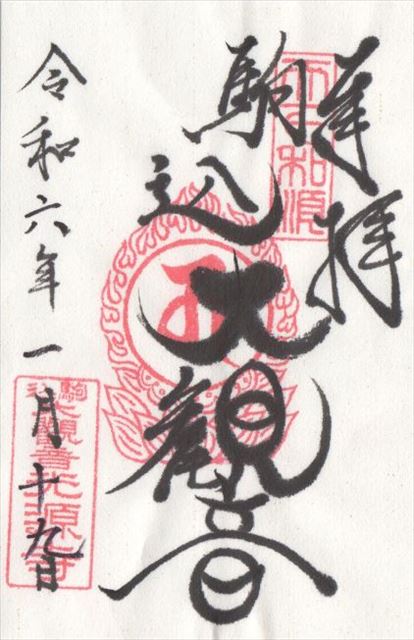 奉拝
駒込大観音
令和六年一月十九日
駒込大観音光源寺